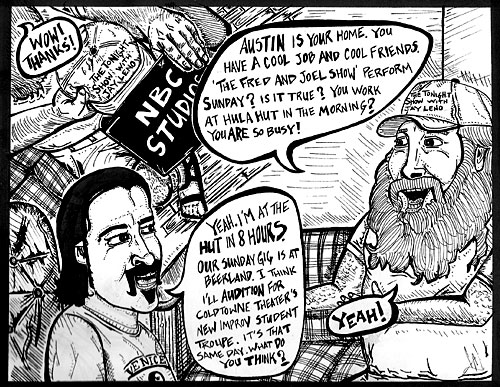 WOW!
THANKS!
THE TONIGHT
SHOW WITH
JAY LENO
NBC
STUDIOS
AUSTIN IS YOUR HOME. YOU
HAVE A COOL JOB AND COOL FRIENDS.
'THE FRED AND JOEL SHOW' PERFORM
SUNDAY? IS IT TRUE? YOU WORK
AT HULA HUT IN THE MORNING?
YOU ARE SO BUSY!
THE TONIGHT
SHOW WITH
JAY LENO
YEAH. I'M AT THE
HUT IN 8 HOURS.
OUR SUNDAY GIG IS AT
BEERLAND. I THINK
I'LL AUDITION FOR
COLDTOWNE THEATER'S
NEW IMPROV STUDENT
TROUPE. IT'S THAT
SAME DAY. WHAT DO
YOU THINK?
YEAH!
VENICE